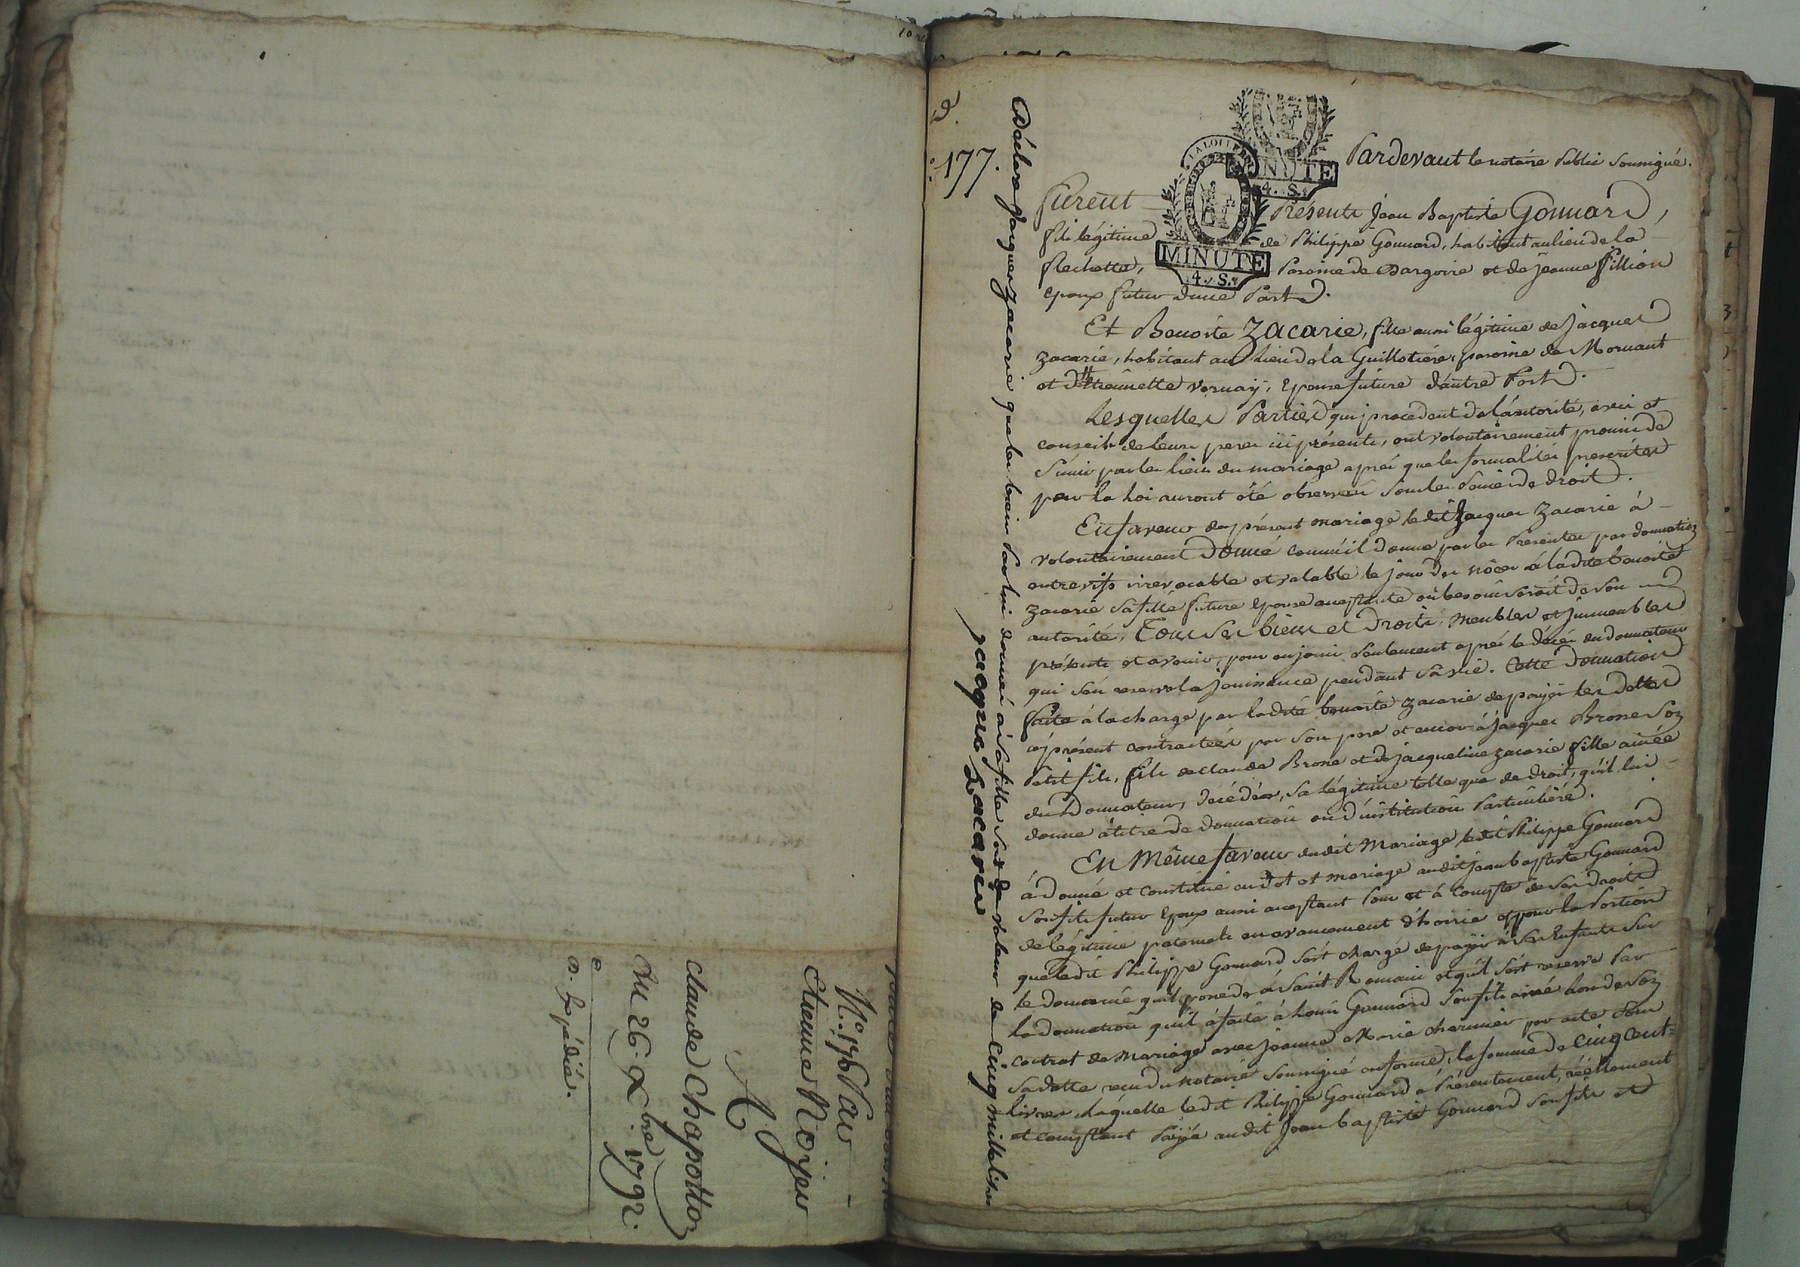 N.° 176 Par
Etienne Noÿer
A
claude Chapotton
Du 26. Xbre 1792.
a. Expédié.
177.
Pardevant le notaire Public soussigné.
furent Présents Jean Baptiste Gonnard,
fils légitime de Philippe Gonnard, habitant au lieu de la
Rechette, Paroisse de Dargoire et de jeanne fillion
epoux futur d'une Part.
Et Benoite Zacarie, fille aussi légitime de jacques
Zacarie, habitant au lieu de la Guillotière, paroisse de Mornant
et d'ttiennette vernay, Epouse future d'autre Part.
Lesquelles Parties qui procedent de l'autorité, avis et
conseils de leurs peres ici présents, ont volontairement promis de
s'unir par les liens du mariage après que les formalités prescrites
par la loi auront été observées sous les peines de droit.
En faveur du présent mariage ledit jacques Zacarie à
volontairement Donné comme il donne par les Présentes par donnation
entre vifs irrevocable et valable le jour des nôces à ladite benoite
Zacarie sa fille future epouse acceptante où besoin seroit de son
autorité, Tous ses biens et Droits, meubles et jmmeubles
présents et avenir, pour en jouir seulement après le décès du donnateur
qui s'en reserve la jouissance pendant sa vie. Cette donnation
faite à la charge par ladite benoite Zacarie de payer les dettes
à présent contractées par son pere et encor à jacques Brosse son
Petit fils, fils de claude Brosse et de jacqueline zacarie fille ainée
du Donnateur, décédée, sa légitime telle que de droit, qu'il lui
donne à titre de donnation ou d'institution Particulière.
En Même faveur dudit Mariage ledit Philippe Gonnard
à Donné et constitué en dot et mariage audit jean baptiste Gonnard
son fils futur Epoux aussi acceptant Pour et à Compte de ses droits
de légitime paternels en avancement d'hoirie et pour la Portion
que ledit Philippe Gonnard s'est chargé de payer à ses Enfants sur
le domaine qu'il possede à Saint Romain et qu'il s'est reservé Par
la donnation qu'il à faite à Louis Gonnard son fils ainé lors de son
contrat de Mariage avec jeanne Marie charmier par acte sous
sa datte reçu du notaire soussigné en forme, la somme de cinq Cent
livres laquelle ledit Philippe Gonnard à Présentement, réellement
et comptant Payée audit jean baptiste Gonnard son fils et
Déclare jacques zacarie que les biens par lui donnés à sa fille sont de valeur de Cinq mille livres
jacque Zacarie